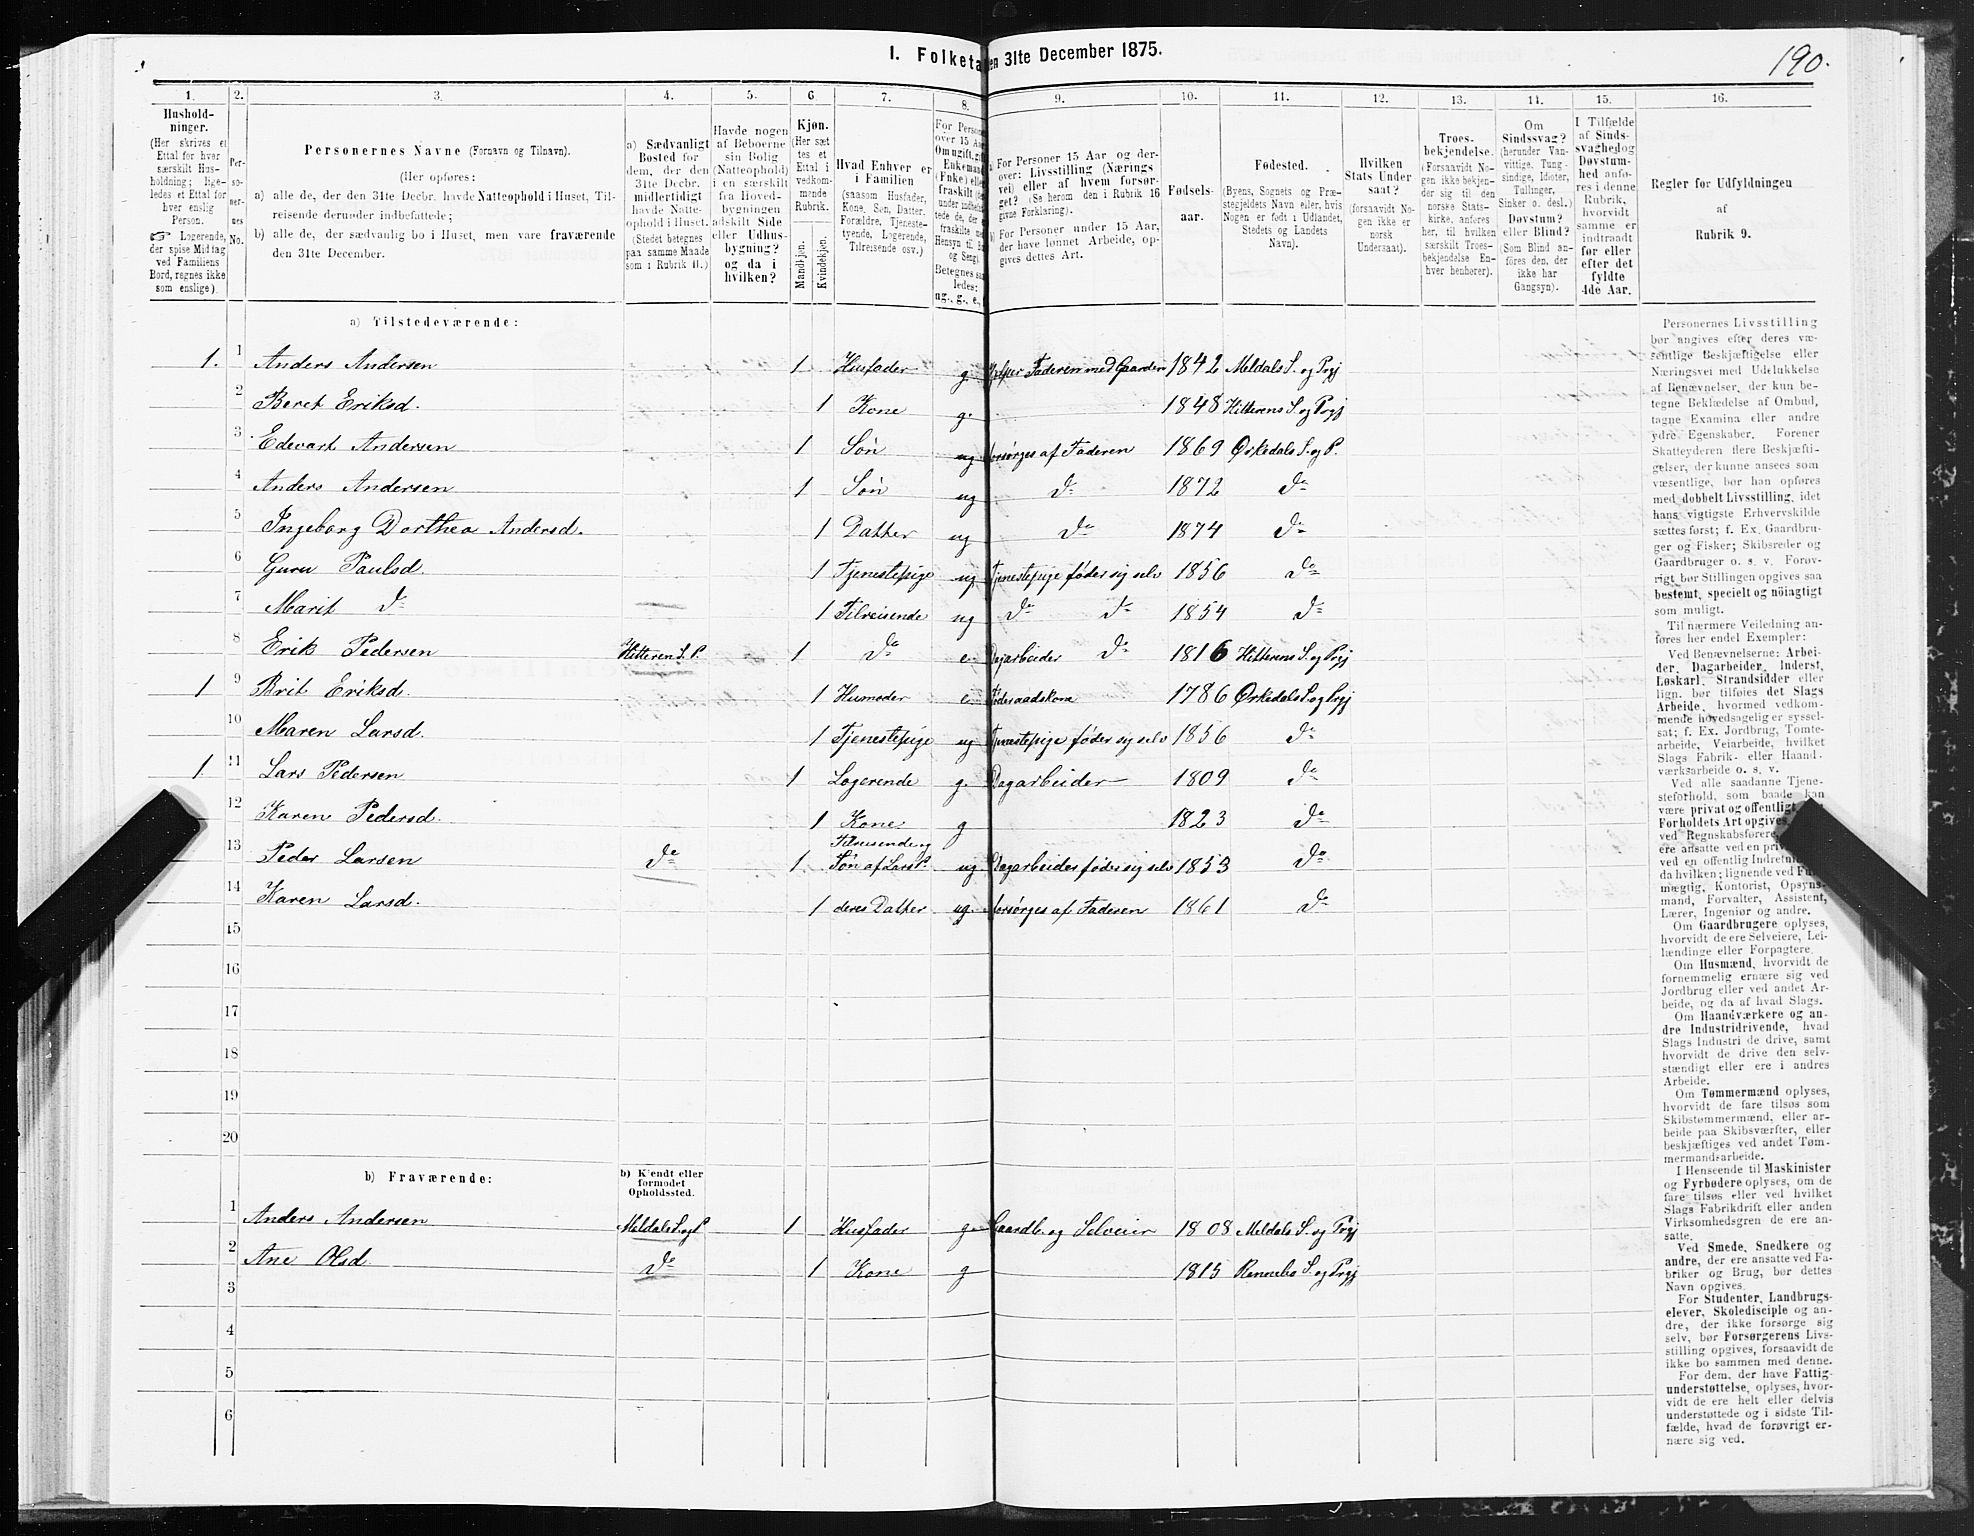 190.
I. Folketa en 31te December 1875.
1. 2. 3. 4. 5. 6. 7. 8. 9. 10. 11. 12. 13. 14. 15. 16.
Hushold-
ninger.
(Her skrives et
Ettal for hver
særskilt Hus-
holdning; lige-
ledes et Ettal for
hver enslig
Person.
☞ Logerende,
der spise Middag
ved Familiens
Bord, regnes ikke
som enslige).
Per-
so-
ner-
nes
No.
Personernes Navne (Fornavn og Tilnavn).
(Her opføres:
a) alle de, der den 31te Decbr. havde Natteophold i Huset, Til-
reisende derunder indbefattede;
b) alle de, der sædvanlig bo i Huset, men vare fraværende
den 31te December.
a) Sædvanligt
Bosted for
dem, der den
31te Decbr.
midlertidigt
havde Natte-
ophold i Huset.
(Stedet betegnes
paa samme Maade
som i Rubrik 11.)
Havde nogen
af Beboerne
sin Bolig
(Natteophold)
i en særskilt
fra Hoved-
bygningen
adskilt Side
eller Udhus-
bygning?
og da i
hvilken?
Kjøn.
(Her sæt
tes et
Ettal i
vedkom-
mende
Rubrik.
Mandkjøn.
Kvindekjøn.
Hvad Enhver er
i Familien
(saasom Husfader,
Kone, Søn, Datter,
Forældre, Tjeneste-
tyende, Logerende,
Tilreisende osv.)
For Persone
over 15 Aa
Om ugift, gif
Enkemand
(Enke) elle
fraskilt
under indbefat
tede de, der e
fraskilte n
Hensyn til B
og Seng).
Betegnes saa
ledes:
ug., g., e.,
For Personer 15 Aar og der-
over: Livsstilling (Nærings
vei) eller af hvem forsør-
get? (Se herom den i Rubrik 16
givne Forklaring).
For Personer under 15 Aar,
der have lønnet Arbeide, op-
gives dettes Art.
Fødsels-
aar.
Fødested.
(Byens, Sognets og Præ-
stegjeldets Navn eller, hvis
Nogen er født i Udlandet,
Stedets og Landets
Navn).
Hvilken
Stats Under
saat?
(forsaavidt No-
gen ikke er
norsk
Undersaat).
Troes-
bekjendelse.
(Forsaavidt No-
gen ikke bekjen-
der sig til den
norske Stats-
kirke, anføres
her, til hvilken
særskilt Troes-
bekjendelse En-
hver henhører).
Om
Sindssvag?
(herunder Van-
vittige, Tung-
sindige, Idioter,
Tullinger,
Sinker o. desl.)
Døvstum?
eller Blind?
(Som Blind an-
føres den, der
ikke har
Gangsyn).
I Tilfælde
af Sinds-
svaghed og
Døvstum-
hed anfø-
res i denne
Rubrik,
hvorvidt
samme er
indtraadt
før eller
efter det
fyldte
4de Aar.
Regler for Udfyldningen
af
Rubrik 9.
a) Tilstedeværende:
1. 1 Anders Andersen 1 Husfader g. Hjelper Faderen med Gaarden 1842 Meldals S. og Prgj
2 Beret Eriksd. 1 Kone g. 1848 Hitterens S. og Prgj
3 Edevart Andersen 1 Søn ug Forsørges af Faderen 1869 Ørkedals S. og P.
4 Anders Andersen 1 Søn ug do 1872 do
5 Ingeborg Dorthea Andersd. 1 Datter ug do 1874 do
6 Guru Paulsd. 1 Tjenestepige ug Tjenestepige føder sig selv 1856 do
7 Marit do 1 Tilreisende ug do do 1854 do
8 Erik Pedersen Hitteren S. P. 1 do e. Dagarbeider do 1816 Hitterens S. og Prgj
1 9 Brit Eriksd. 1 Husmoder e. Føderaadskone 1786 Ørkedals S. og Prgj
10 Maren Larsd. 1 Tjenestepige ug Tjenestepige føder sig selv 1856 do
1 11 Lars Pedersen 1 Logerende g. Dagarbeider 1809 do
12 Karen Pedersd. 1 Kone g 1823 do
13 Peder Larsen do 1 Tilreisende og Søn af Lars P. ug Dagarbeider føder sig selv 1853 do
14 Karen Larsd. 1 deres Datter ug. Forsørges af Faderen 1861 do
15
16
17
18
19
20
b) Fraværende:
b) Kjendt eller
formodet
Opholdssted.
1 Anders Andersen Meldals S. og P 1 Husfader g. Gaardb. og Selveier 1808 Meldals S. og Prgj
2 Ane Olsd. do 1 Kone g 1815 Rennebo S. og Prgj
3
4
5
6
Personernes Livsstilling
bør angives efter deres væ-
sentlige Beskjæftigelse eller
Næringsvei med Udelukkelse
af Benævnelser, der kun be-
tegne Beklædelse af Ombud,
tagne Examina eller andre
ydre Egenskaber. Forener
Skatteyderen flere Beskjæfti-
gelser, der kunne ansees som
væsentlige, bør han opføres
med dobbelt Livsstilling, idet
hans vigtigste Erhvervskilde
sættes først; f. Ex. Gaardbru-
ger og Fisker; Skibsreder og
Gaardbruger o. s. v. Forøv-
rigt bør Stillingen opgives saa
bestemt, specielt og nöiagtigt
som muligt.
Til nærmere Veiledning an-
føres her endel Exempler:
Ved Benævnelserne: Arbei-
der, Dagarbeider, Inderst,
Løskarl, Strandsidder eller
lign. bør tilføies det Slags
Arbeide, hvormed vedkom-
mende hovedsagelig er syssel-
sat; f. Ex. Jordbrug, Tomte-
arbeide, Veiarbeide, hvilket
Slags Fabrik- eller Haand-
værksarbeide o. s. v.
Ved alle saadanne Tjene-
steforhold, som baade kan
være privat og offentligt,
Forholdets Art opgives,
ved Regnskabsførere,
ere ansatte ved en pri
ved en offentlig Indretni
da hvilken; lignende ved Ful
mægtig, Kontorist, Opsyns-
mand, Forvalter, Assistent,
Lærer, Ingeniør og andre.
Om Gaardbrugere oplyses,
hvorvidt de ere Selveiere, Lei-
lændinge eller Forpagtere.
Om Husmænd, hvorvidt de
fornemmelig ernære sig ved
Jordbrug eller ved andet Ar-
beide, og da af hvad Slags.
Om Haandværkere og an-
dre Industridrivende, hvad
Slags Industri de drive, samt
hvorvidt de drive den selv-
stændigt eller ere i andres
Arbeide.
Om Tømmermænd oplyses,
hvorvidt de fare tilsøs som
Skibstømmermænd, eller ar-
beide paa Skibsværfter, eller
beskjæftiges ved andet Tøm-
mermandsarbeide.
I Henseende til Maskinister
og Fyrbødere oplyses, om de
fare tilsøs eller ved hvilket
Slags Fabrikdrift eller anden
Virksomhedsgren de ere an-
satte.
Ved Smede, Snedkere og
andre, der ere ansatte ved Fa-
briker og Brug, bør dettes
Navn opgives.
For Studenter, Landbrugs-
elever, Skoledisciple og an-
dre, der ikke forsørge sig
selv, bør Forsørgerens Livs-
stilling opgives, forsaavidt de
ikke bo sammen med denne.
For dem, der have Fattig-
understøttelse, oplyses, hvor-
vidt de ere helt eller delvis
understøttede og i sidste Til-
fælde, hvad de forøvrigt er-
nære sig ved.